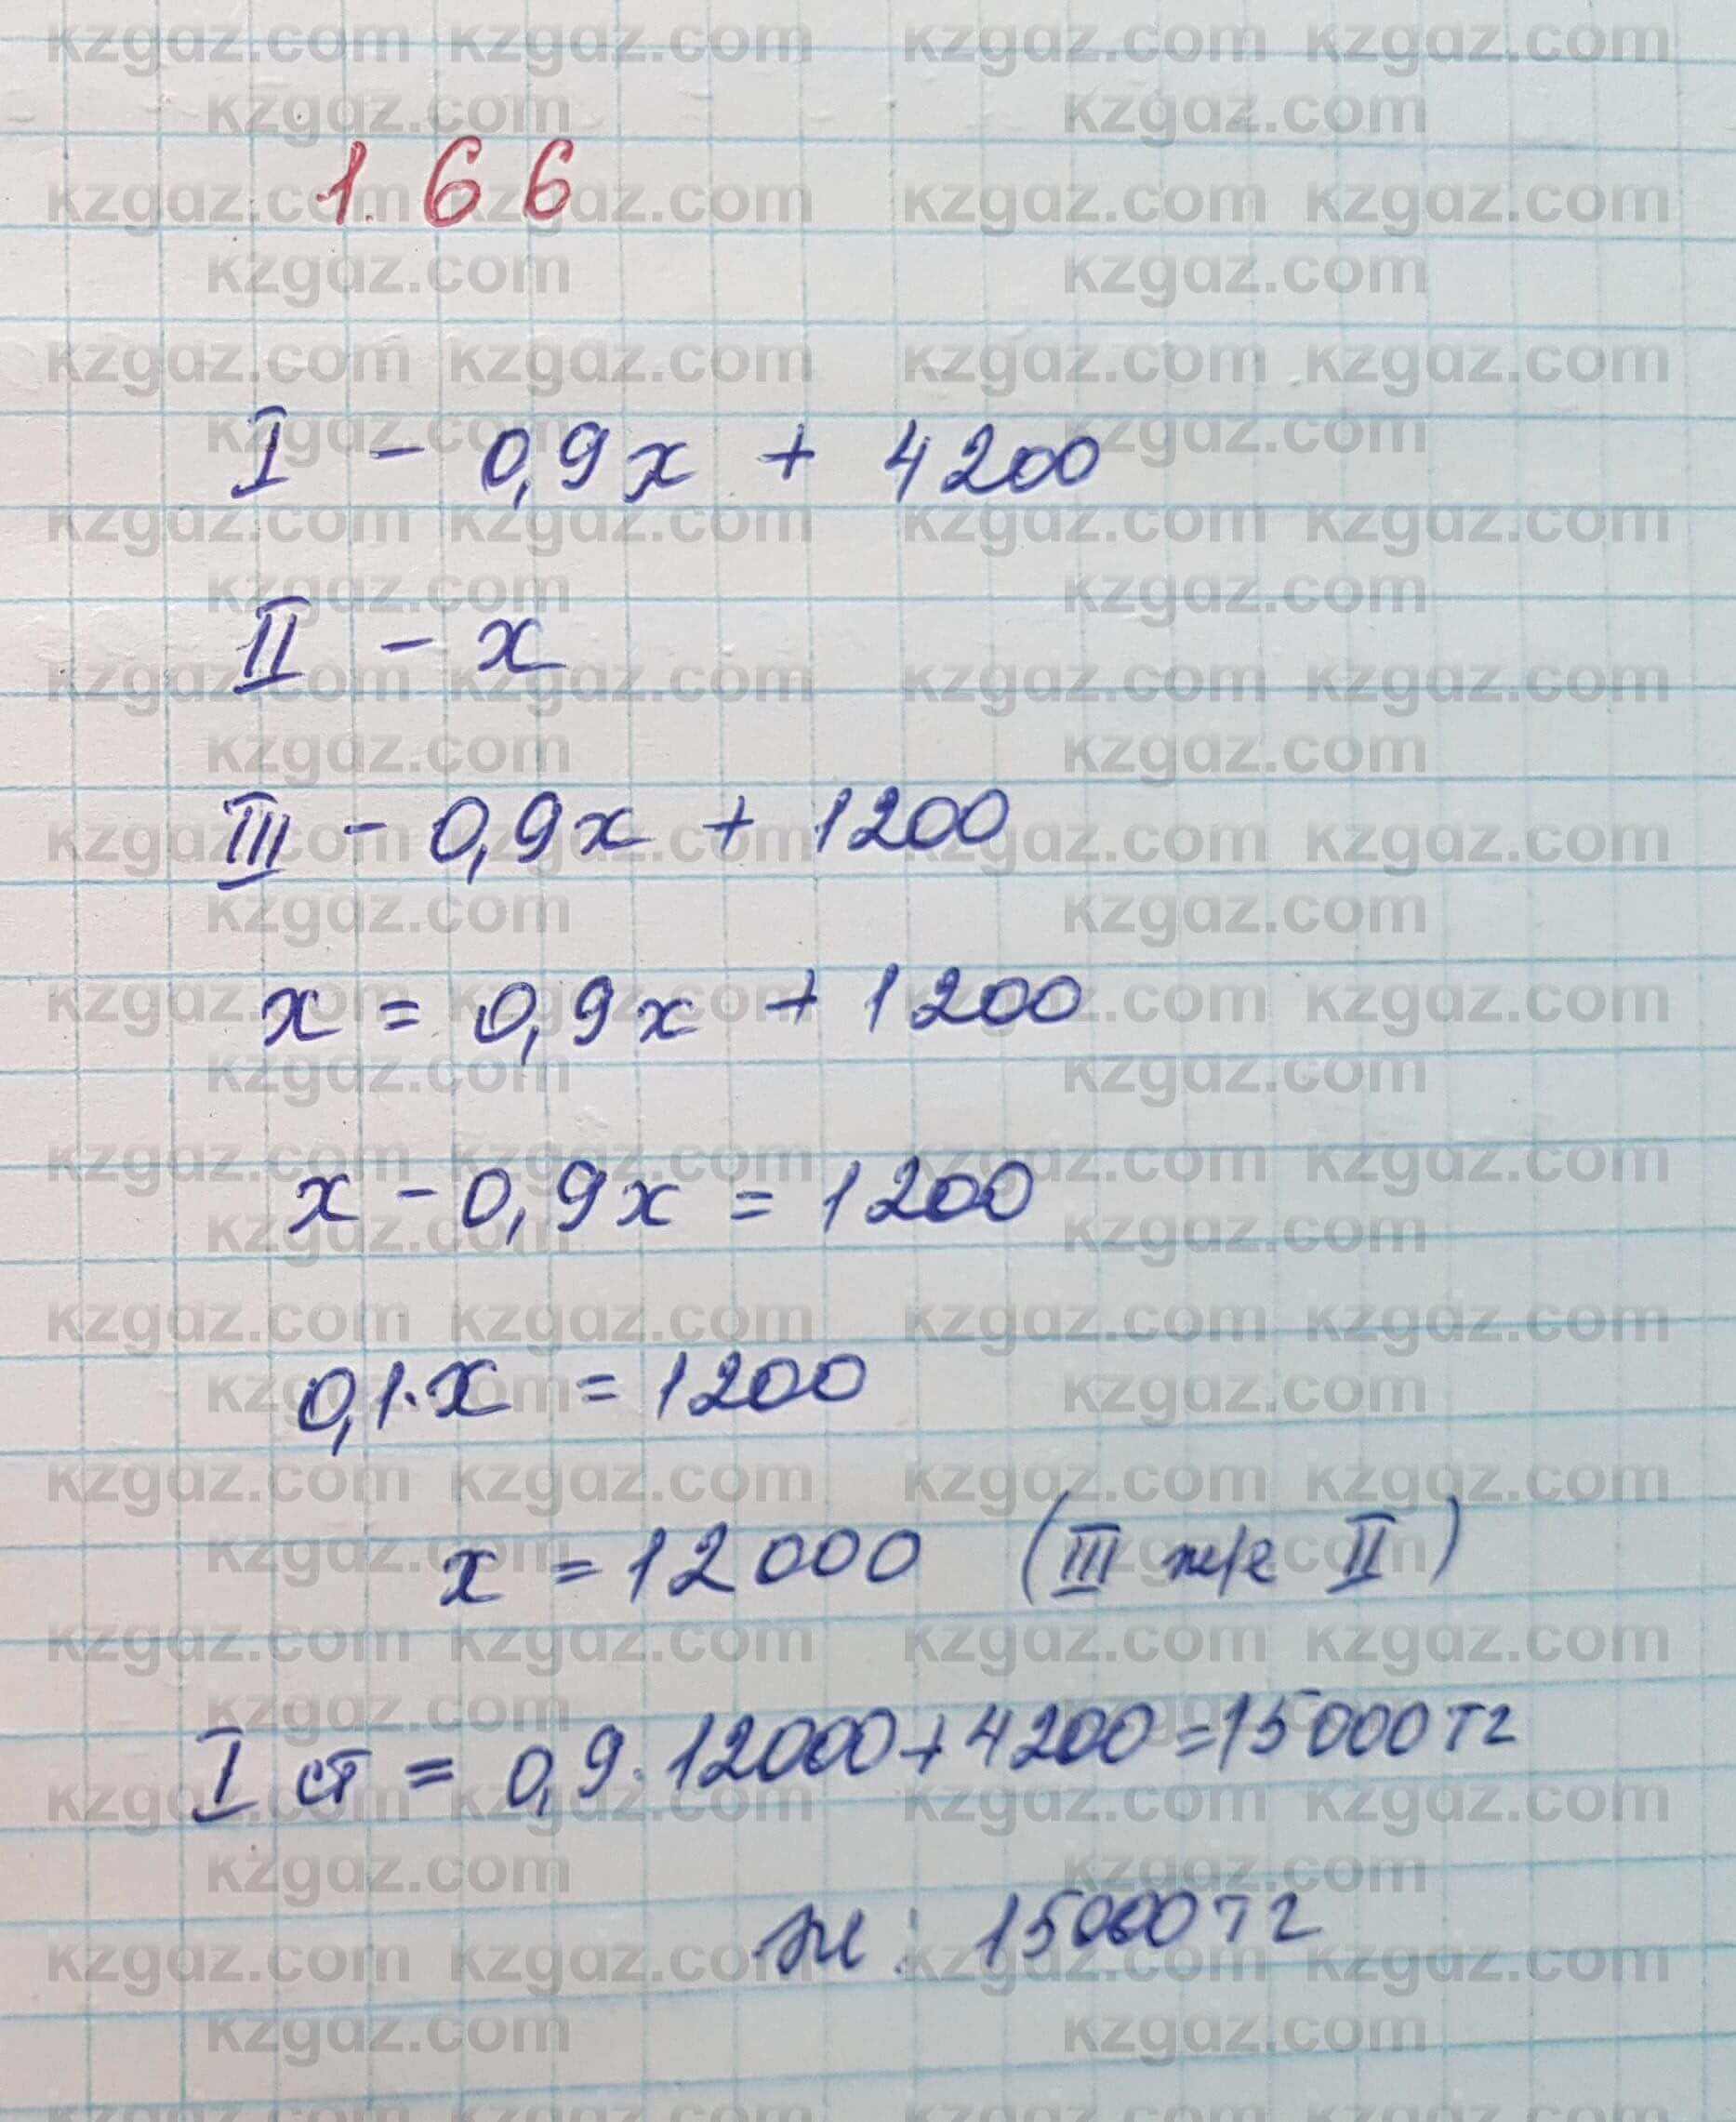 1.66
I - 0,9x + 4200
II - x
III - 0,9x + 1200
x = 0,9x + 1200
x - 0,9x = 1200
0,1·x = 1200
x = 12000 (III ж/е II)
I ст = 0,9·12000+4200=15000тг
Ж: 15000тг
kzgaz.com